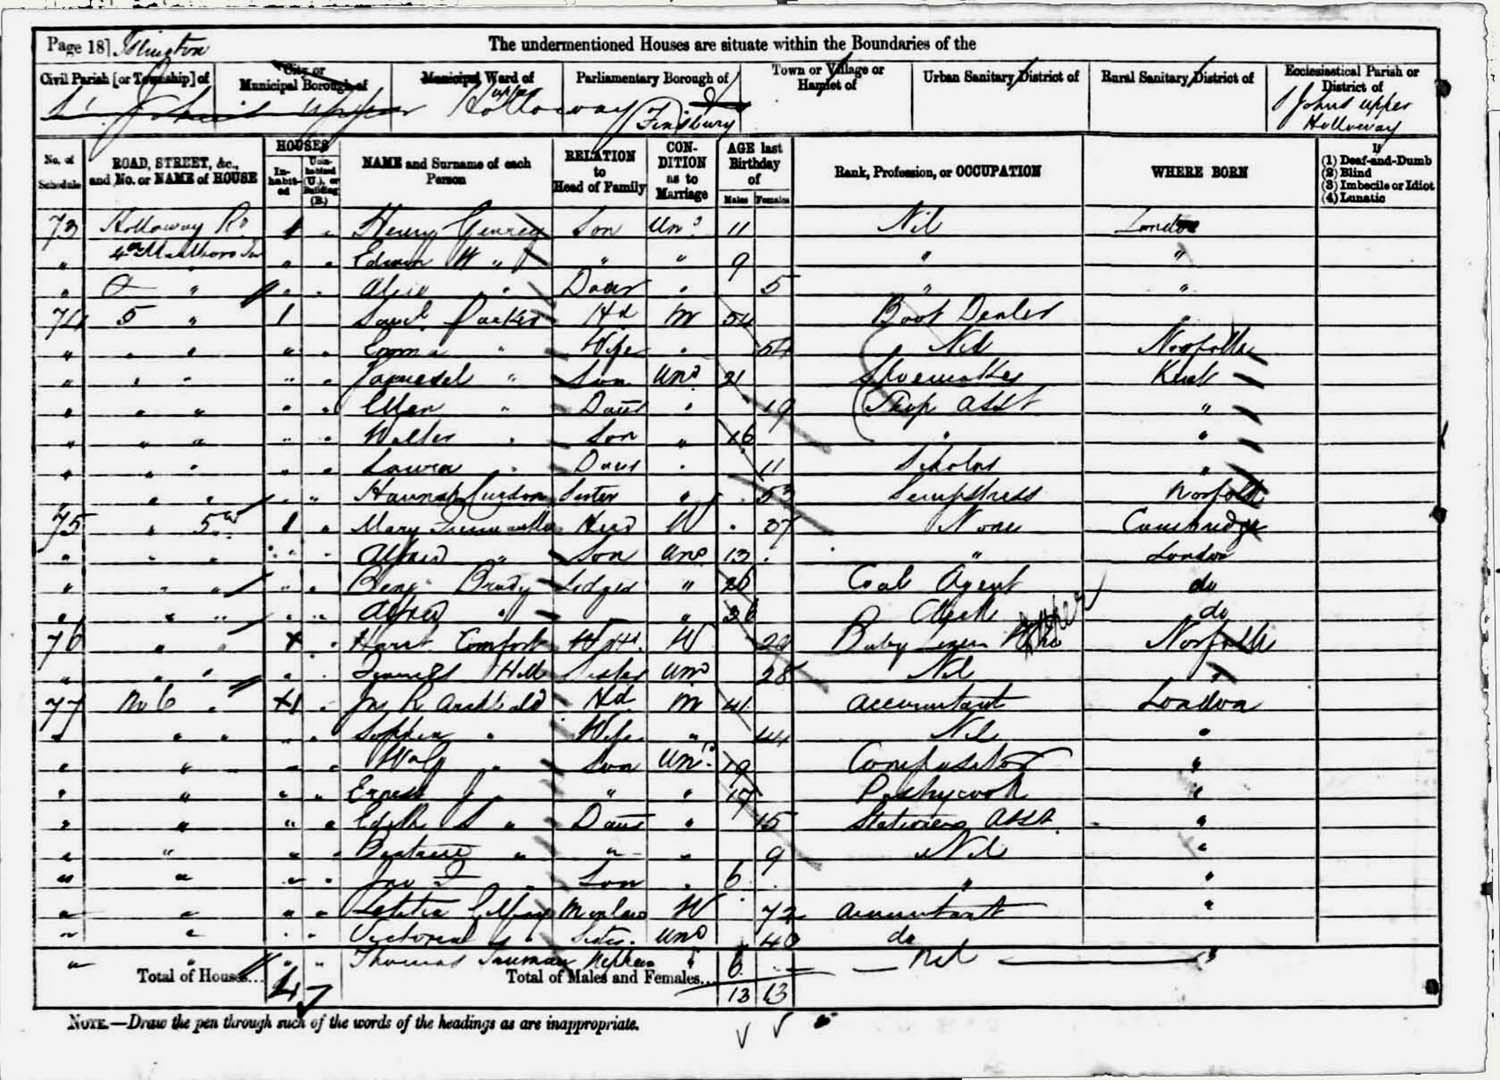 Page 18] Islington The undermentioned Houses are situate within the Boundaries of the
Civil Parish [or Township] of City or Municipal Borough of Municipal Ward of Parliamentary Borough of Town or Village or Hamlet of Urban Sanitary District of Rural Sanitary District of Ecclesiastical Parish or District of
Upper Holloway Finsbury St Johns upper Holloway
No. of Schedule ROAD, STREET, &c., and No. or NAME of HOUSE HOUSES In-habit-ed Unin-habited (U.), or Building (B.) NAME and Surname of each Person RELATION to Head of Family CON-DITION as to Marriage AGE last Birthday of Males Females Rank, Profession, or OCCUPATION WHERE BORN If (1) Deaf-and-Dumb (2) Blind (3) Imbecile or Idiot (4) Lunatic
73 Holloway Rd 1 " Henry Son Unm 11 Nil London
" " " Edwin W " " " 9 " "
" " " " Daur " 5 " "
74 5 " 1 Saml Parker Hd M 54 Book Dealer "
" " " " " Emma " Wife " 54 Nil Norfolk
" " " " " " Son Unm 21 Shoemaker Kent
" " " " " Ellen " Daur " 19 Shop Asst "
" " " " " Walter " Son " 16 " "
" " " " Laura " Daur " 11 Scholar "
" " " " Hannah Sister " 53 Sempstress Norfolk
75 " 5a 1 " Mary Head W 37 None Cambridge
" " " " " Alfred " Son Unm 13 " London
" " " " " Benj Brady Lodger " 26 Coal Agent do
" " " " " Alfred " " 26 Clerk do
76 " " Comfort W 29 Baby Linen Norfolk
" " " " " Hill Sister Unm 28 Nil "
77 No 6 " 1 " Jno R Archbald Hd M 41 Accountant London
" " " " " Sophia " Wife " 44 Nil "
" " " " " Son Unm 19 Compositor "
" " " " Ernest J " " " 17 Pastrycook "
" " " " Edith S " Daur " 15 Stationers Asst "
" " " " Beatrice " " " 9 Nil "
" " " " Jno Son " 6 " "
" " " " Letitia W 72 Accountant "
" " " " Victoria " Sister Unm 40 do
" " " " Thomas Nephew " 6 Nil "
Total of Houses... 4 Total of Males and Females... 13 13
NOTE.—Draw the pen through such of the words of the headings as are inappropriate.